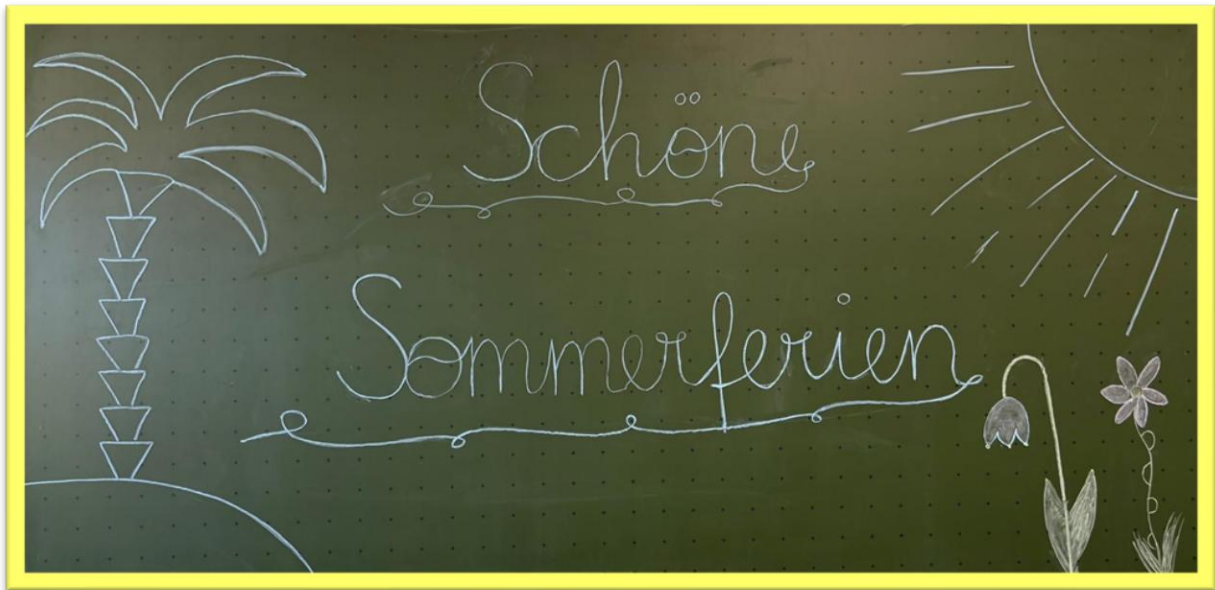 Schöne
Sommerferien